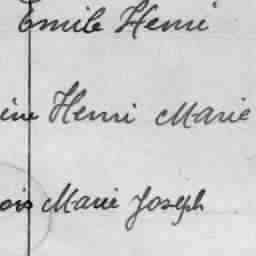 Emile Henri
ine Henri Marie
ois Marie Joseph